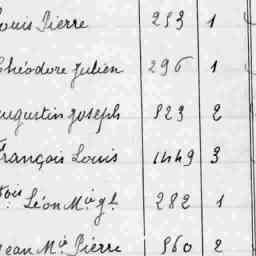 Louis Pierre 253 1
Théodore Julien 296 1
Augustin Joseph 823 2
François Louis 1449 3
fois Léon M.ie g.l 282 1
Jean M.ie Pierre 560 2